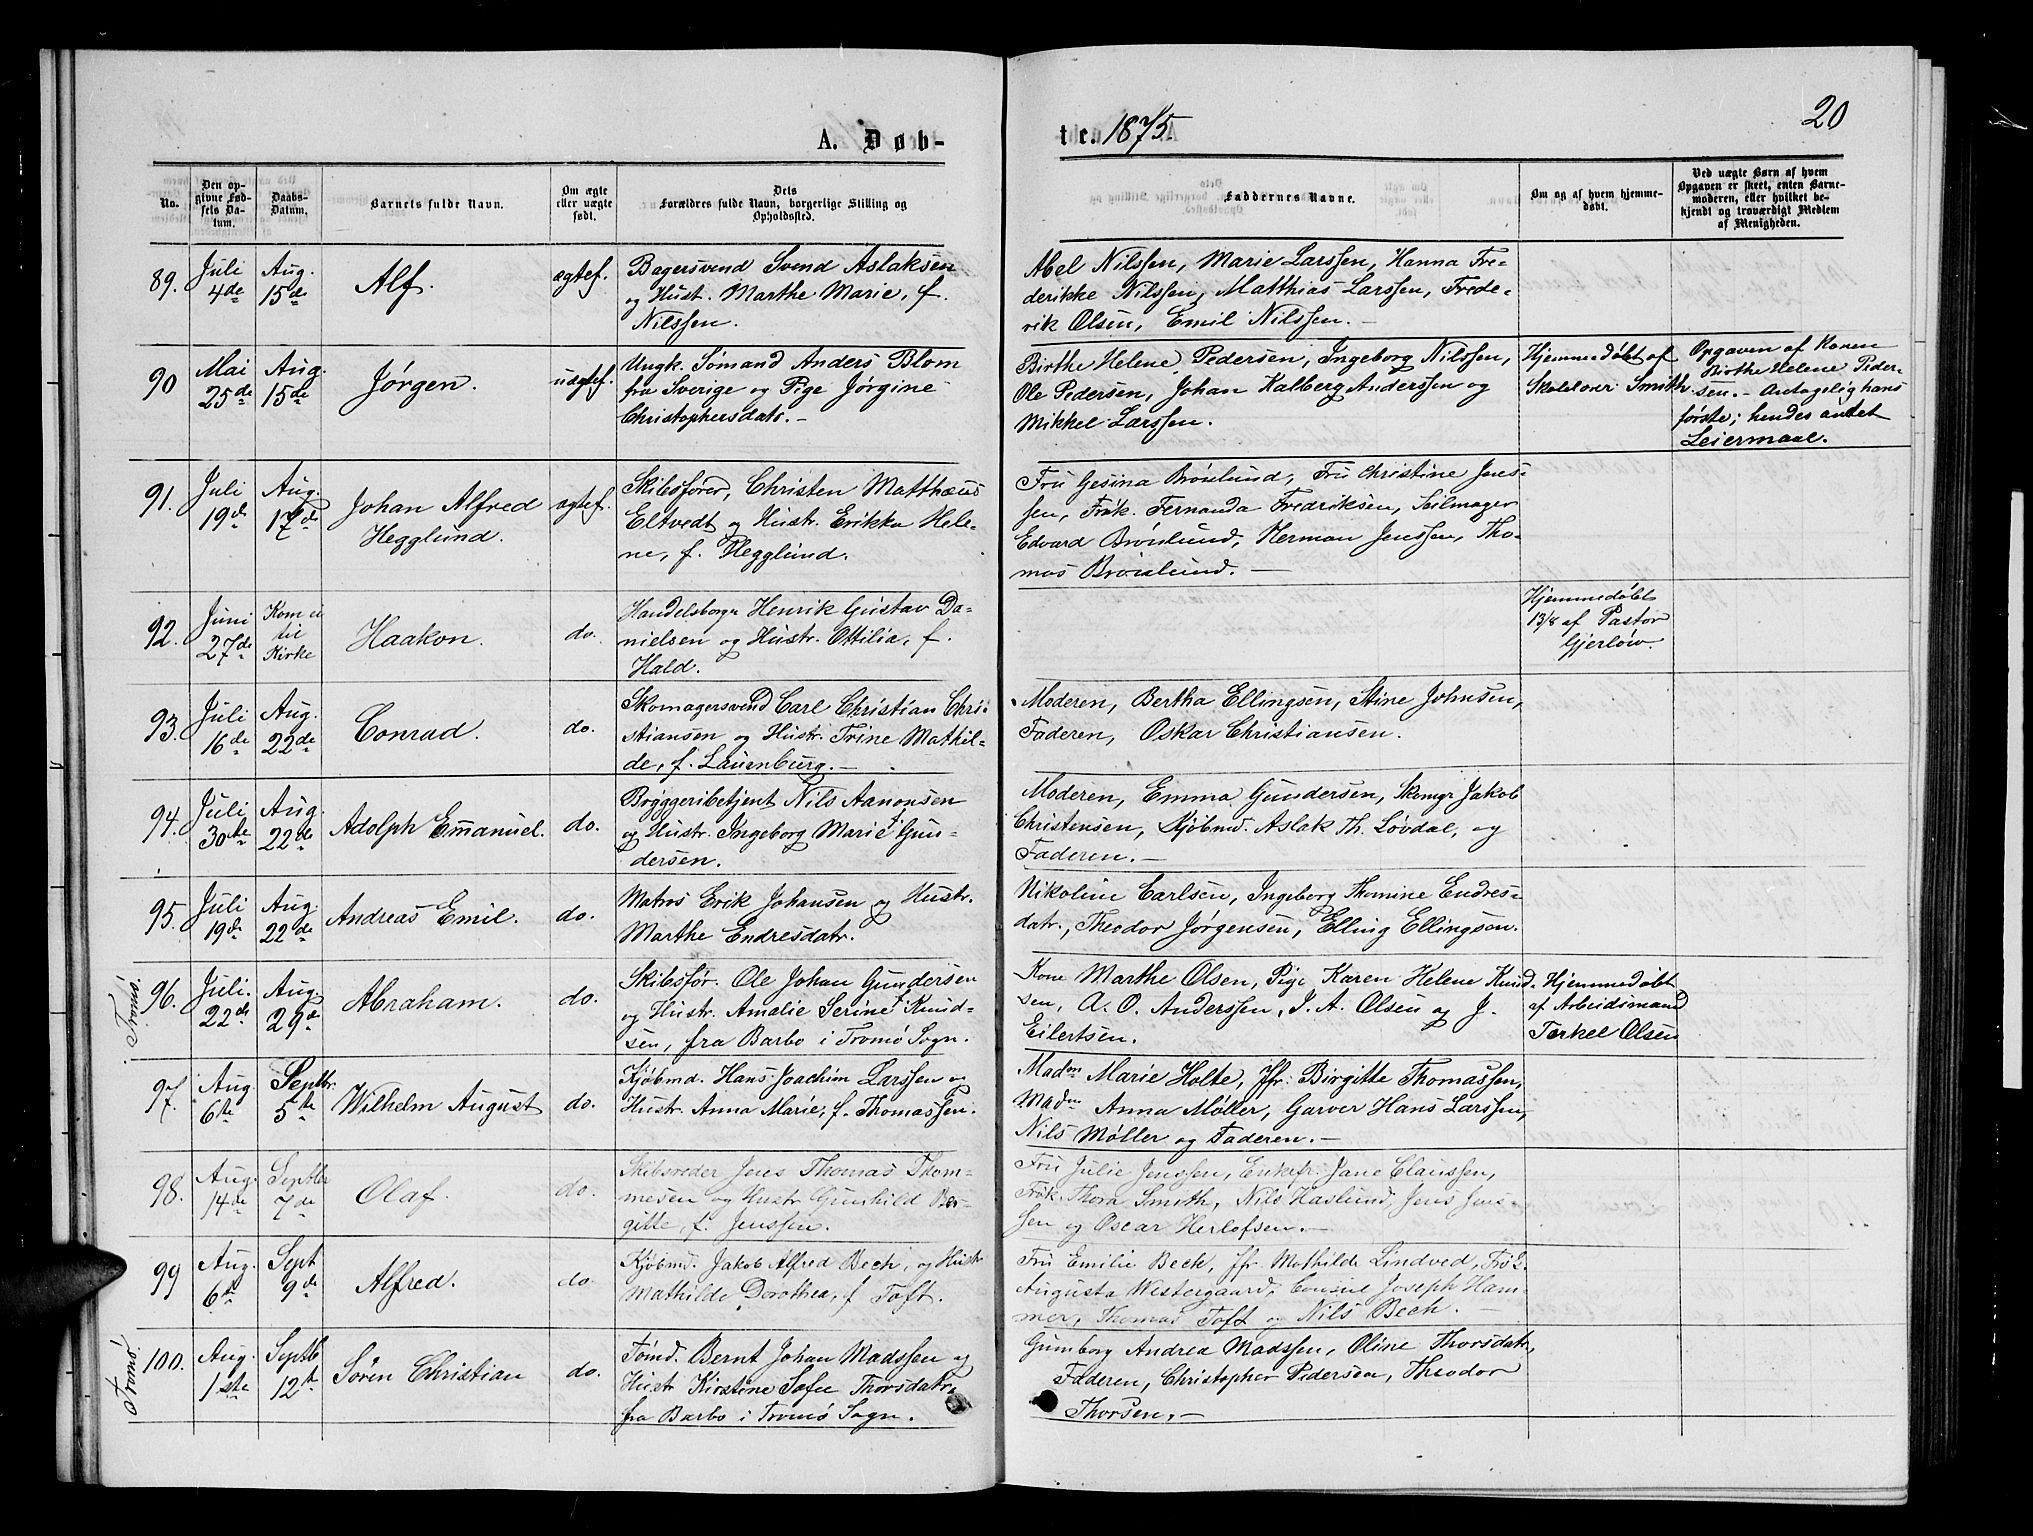 20
A. Døb-
te. 1875.
No.
Den op-
givne Fød-
sels Da-
tum.
Daabs-
Datum.
Barnets fulde Navn.
Om ægte
eller uægte
født.
Dets
Forældres fulde Navn, borgerlige Stilling og
Opholdssted.
Faddernes Navne.
Om og af hvem hjemme-
døbt.
Ved uægte Børn af hvem
Opgaven er skeet, enten Barne-
moderen, eller hvilket be-
kjendt og troværdigt Medlem
af Menigheden.
89.
Juli
4de
Aug.
15de
Alf.
ægtef.
Bagersvend Svend Aslaksen
og Hust. Marthe Marie, f.
Nilssen.
Abel Nilssen, Marie Larssen, Hanna Fre-
derikke Nilssen, Matthias Larssen, Frede-
rik Olsen, Emil Nilssen. –
90
Mai
25de
Aug.
15de
Jørgen.
uægtef.
Ungk. Sømand Anders Blom
fra Sverige og Pige Jørgine
Christophersdatr. –
Birthe Helene Pedersen, Ingeborg Nilssen,
Ole Pedersen, Johan Kalberg Anderssen og
Mikkel Larssen.
Hjemmedøbt af
Skolelærer Smith.
Opgaven af Konen
Birthe Helene Peder-
sen. – Antagelig hans
første; hendes andet
Leiermaal.
91.
Juli
19de
Aug.
17de
Johan Alfred
Hegglund.
ægtef.
Skibsfører, Christen Matthæus
Eltvedt og Hustr. Erikka Hele-
ne, f. Hegglund.
Fru Gesina Brönlund, Fru Christine Jens-
sen, Frøk. Fernanda Fredriksen, Seilmager
Edvard Brönlund, Herman Jenssen, Tho-
mas Brönlund. –
92.
Juni
27de
Kom ei
til
Kirke
Haakon.
do.
Handelsborgr Henrik Gustav Da-
nielsen og Hustr. Ottilia, f.
Hald.
Hjemmedøbt
13/8 af Pastor
Gjerløw.
93.
Juli
16de
Aug.
22de
Conrad.
do.
Skomagersvend Carl Christian Chri-
stiansen og Hustr. Trine Mathil-
de, f. Lauenburg. –
Moderen, Bertha Ellingsen, Stine Johnsen,
Faderen, Oskar Christiansen.
94.
Juli
30te
Aug.
22de
Adolph Emanuel.
do.
Bryggeribetjent Nils Aanonsen
og Hustr. Ingeborg Marie f. Gun-
dersen.
Moderen, Emma Gundersen, Skomgr Jakob
Christensen, Kjøbmd. Aslak Th. Løvdal, og
Faderen. –
95.
Juli
19de
Aug.
22de
Andreas Emil.
do.
Matros Erik Johansen og Hustr.
Marthe Endresdatr.
Nikoline Carlsen, Ingeborg Thomine Endres-
datr., Theodor Jørgensen, Elling Ellingsen.
Tromø.
96.
Juli.
22de
Aug.
29de
Abraham.
do.
Skibsfør. Ole Johan Gundersen
og Hustr. Amalie Serine f. Knud-
sen, fra Barbo i Tromø Sogn.
Kone Marthe Olsen, Pige Karen Helene Knud-
sen, A. O. Anderssen, I. A. Olsen og J.
Eilertsen.
Hjemmedøbt
af Arbeidsmand
Terkel Olsen
97.
Aug.
6te
Septbr.
5te
Wilhelm August
do.
Kjøbmd. Hans Joachim Larssen og
Hustr. Anna Marie, f. Thomassen.
Madm Marie Holte, Jfr. Birgitte Thomassen,
Madm Anna Møller, Garver Hans Larssen,
Nils Møller og Faderen. –
98.
Aug.
14de
Septbr
7de
Olaf.
do.
Skibsreder Jens Thomas Thom-
mesen og Hustr Gunhild Bir-
gitte, f. Jenssen.
Fru Julie Jenssen, Enkefr. Jane Claussen,
Frøk. Thora Smith, Nils Haslund, Jens Jens-
sen og Oscar Herlofsen. –
99
Aug.
6te
Sept
9de
Alfred.
do.
Kjøbmd. Jakob Alfred Bech, og Hustr
Mathilde Dorothea, f Toft.
Fru Emilie Beck, Jfr. Mathilde Lindved, Frøk.
Augusta Westergaard, Consul Joseph Ham-
mer, Thomas Toft og Nils Bech. –
Tromø.
100.
Aug.
1ste
Septb
12te
Søren Christian
do.
Tømd. Bernt Johan Madssen og
Hustr Kirstine Sofie Thorsdatr,
fra Barbo i Tromø Sogn.
Gunborg Andrea Madssen, Oline Thorsdatr,
Faderen, Christopher Pedersen, Theodor
Thorsen. –